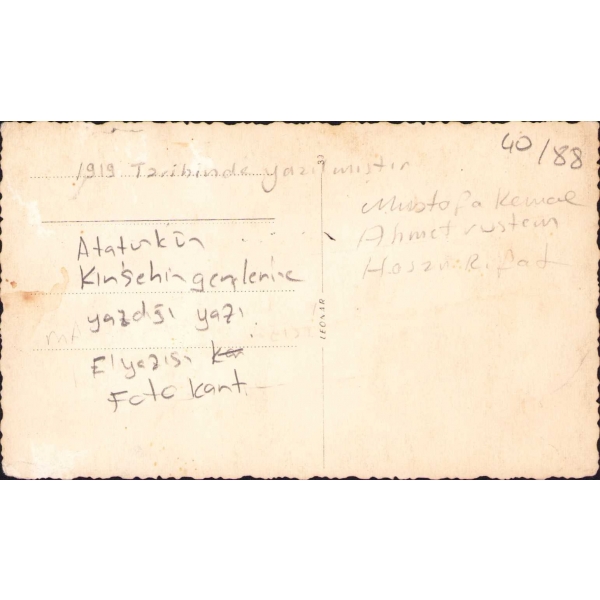 40/88
1919 Tarihinde yazılmıştır
Atatürkün
Kırşehir gençlerine
yazdığı yazı
El yazısı
Foto kart
Mustafa Kemal
Ahmet rüstem
Hasan Rifat
LEONAR